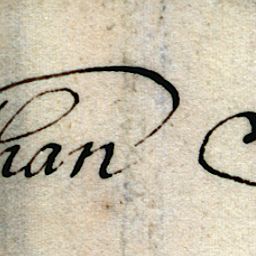 han C